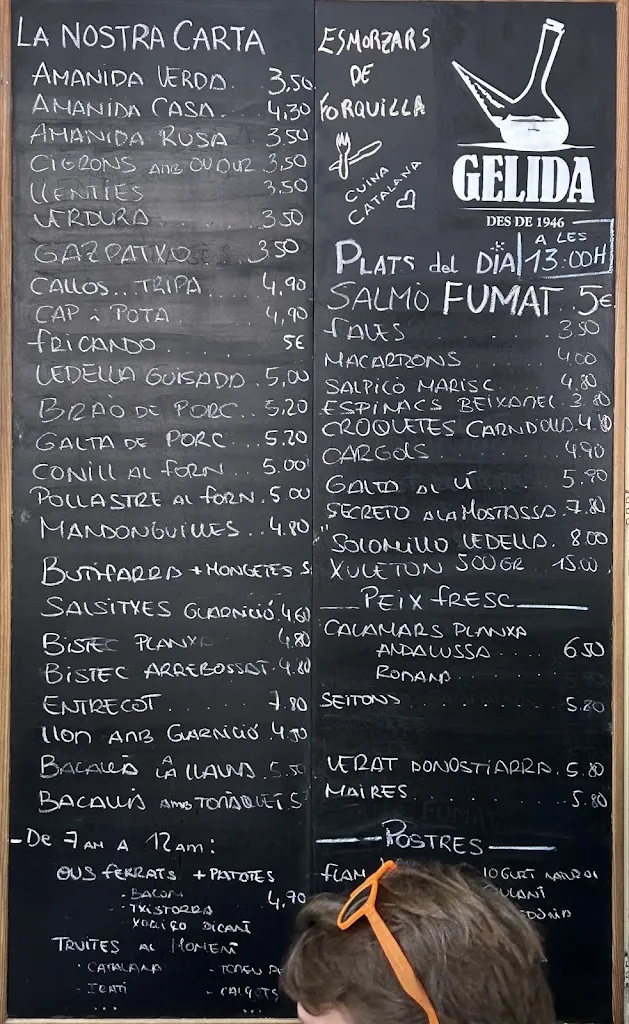 LA NOSTRA CARTA
AMANIDA VERDA. 3,50
AMANIDA CASA. 4,30
AMANIDA RUSA 3,50
CIGRONS AMB OU DUR 3,50
LLENTIES 3,50
VERDURA 3,50
GAZPATXO 3,50
CALLOS... TRIPA 4,90
CAP i POTA 4,90
FRICANDO 5€
VEDELLA GUISADA. 5,00
BRAÓ DE PORC... 5,20
GALTA DE PORC... 5,20
CONILL AL FORN... 5.00
POLLASTRE AL FORN. 5,00
MANDONGUILLES... 4.80
BUTIFARRA + MONGETES 5
SALSITXES GUARNICIÓ 4,60
BISTEC PLANXA 4,80
BISTEC ARREBOSSAT. 4.80
ENTRECOT 7.80
LLOM AMB GUARNICIÓ 4.90
BACALLÀ A LA LLAUNA. 5,50
BACALLÀ AMB TOMÀQUET 5
- DE 7AM A 12AM:
OUS FERRATS + PATATES
- BACON 4,90
- TXISTORRA
- XORIÇO PICANT
TRUITES AL MOMENT
- CATALANA
- CALÇOTS
...
ESMORZARS
DE
FORQUILLA
CUINA
CATALANA
GELIDA
DES DE 1946
PLATS del DIA A LES 13:00H
SALMÓ FUMAT. 5€
FAVES 3,50
MACARRONS 4,00
SALPICÓ MARISC 4,80
ESPINACS BEIXAMEL. 3.80
CROQUETES CARN D'OLLA. 4.80
CARGOLS 4,90
GALTA AL VÍ 5.90
SECRETO A LA MOSTASSA. 7.80
SOLOMILLO VEDELLA. 8.00
XULETON 500GR... 15,00
PEIX FRESC
CALAMARS PLANXA
ANDALUSSA 6,50
ROMANA
SEITONS 5.80
VERAT DONOSTIARRA. 5.80
MAIRES 5.80
POSTRES
FLAM
IOGURT NATURAL